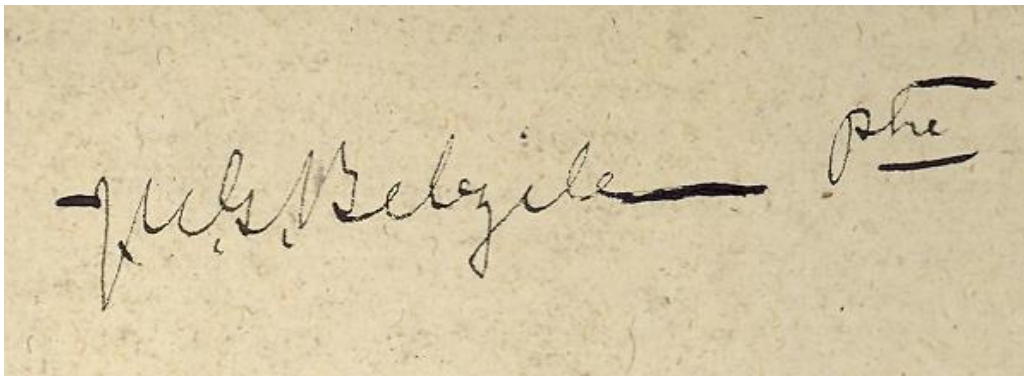 J.U.G. Belzile ptre